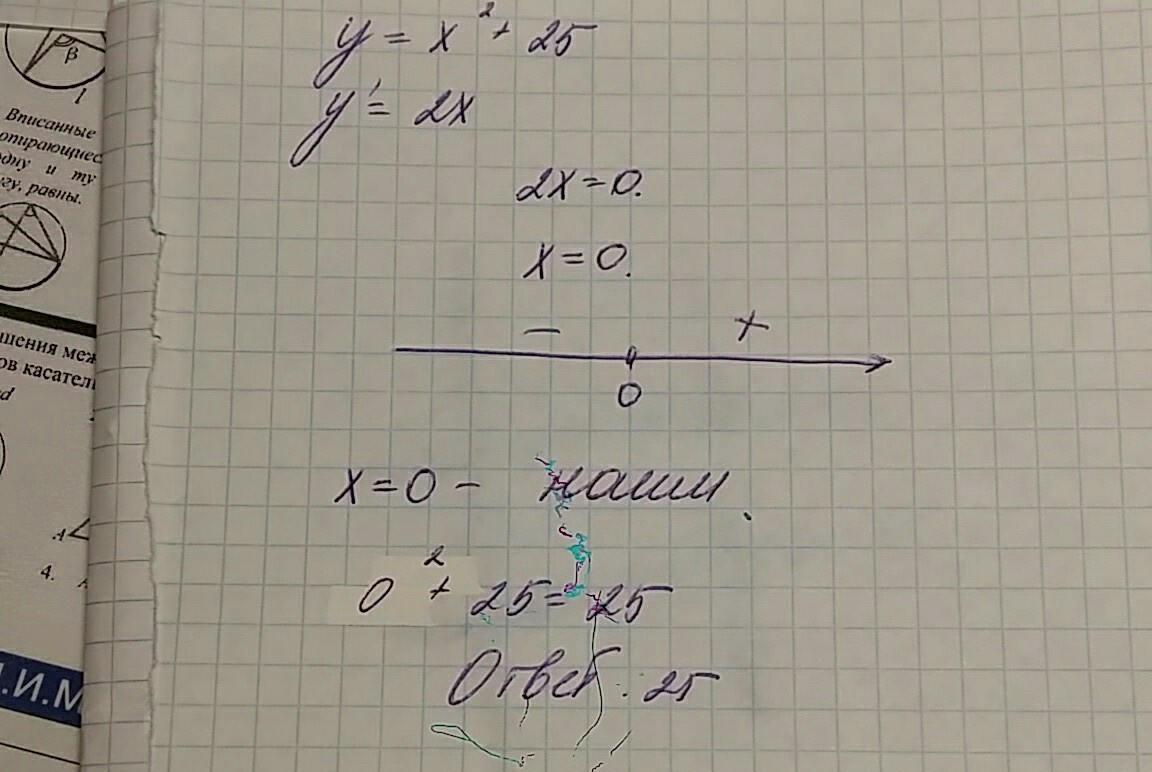 y = x² + 25
y' = 2x
2x = 0.
x = 0.
− +
0
x = 0 − наим.
0² + 25 = 25
Ответ: 25
β
1
Вписанные
опирающиес
одну и ту
гу, равны.
шения меж
ов касател
d
A
4.
.И.М